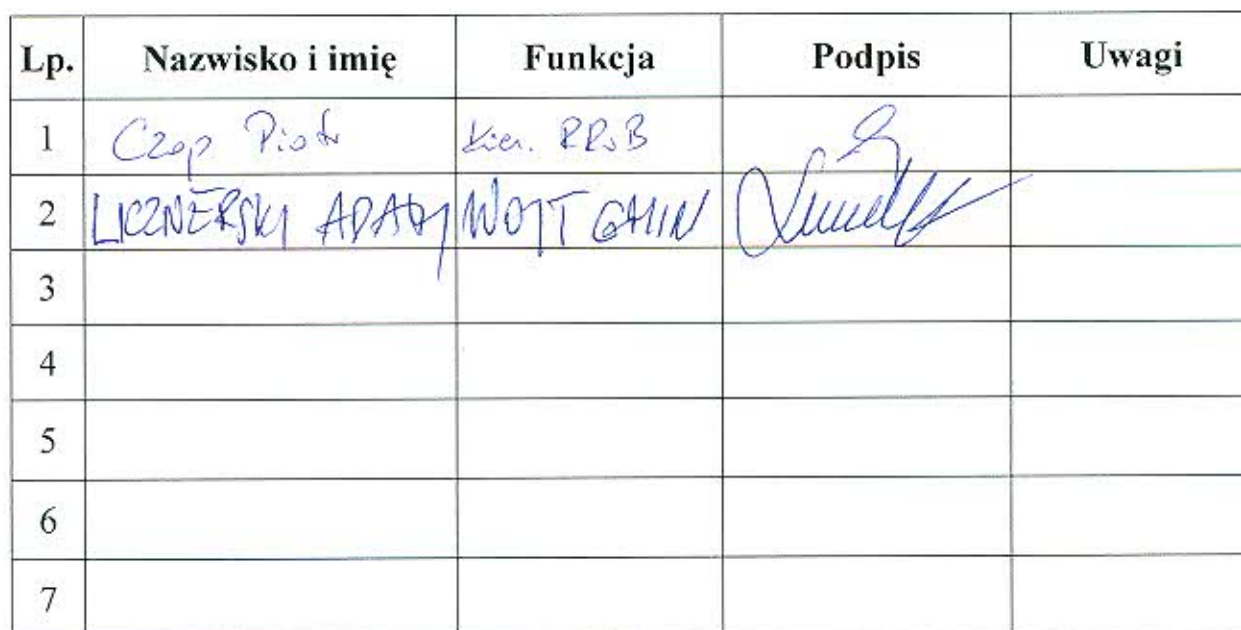 Lp. Nazwisko i imię Funkcja Podpis Uwagi
1 Czap Piotr Kier. RRiB
2 LICZNERSKI ADAM WÓJT GMIN
3
4
5
6
7